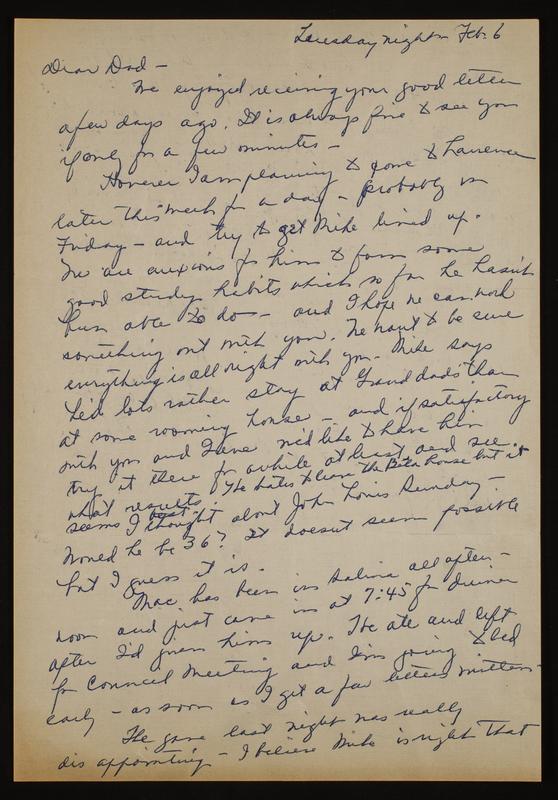 Tuesday night - Feb. 6
Dear Dad -
We enjoyed receiving your good letter
a few days ago. It is always fine to see you
if only for a few minutes -
However I am planning to come to Lawrence
later this week for a day - probably on
Friday - and try to get Mike lined up.
We are anxious for him to form some
good study habits which so far he hasn't
been able to do - and I hope we can work
something out with you. We want to be sure
everything is all right with you. Mike says
he'd lots rather stay at Granddads than
at some rooming house - and if satisfactory
with you and Jane we'd like to have him
try it there for awhile at least and see
what results. He hates to leave the Beta house but it
seems best.
I thought about John Louis Sunday -
Would he be 36? It doesn't seem possible
but I guess it is.
Mac has been in Salina all after-
noon and just came in at 7:45 for dinner
after I'd given him up. He ate and left
for Council Meeting and I'm going to bed
early - as soon as I get a few letters written -
The game last night was really
disappointing - I believe Mike is right that